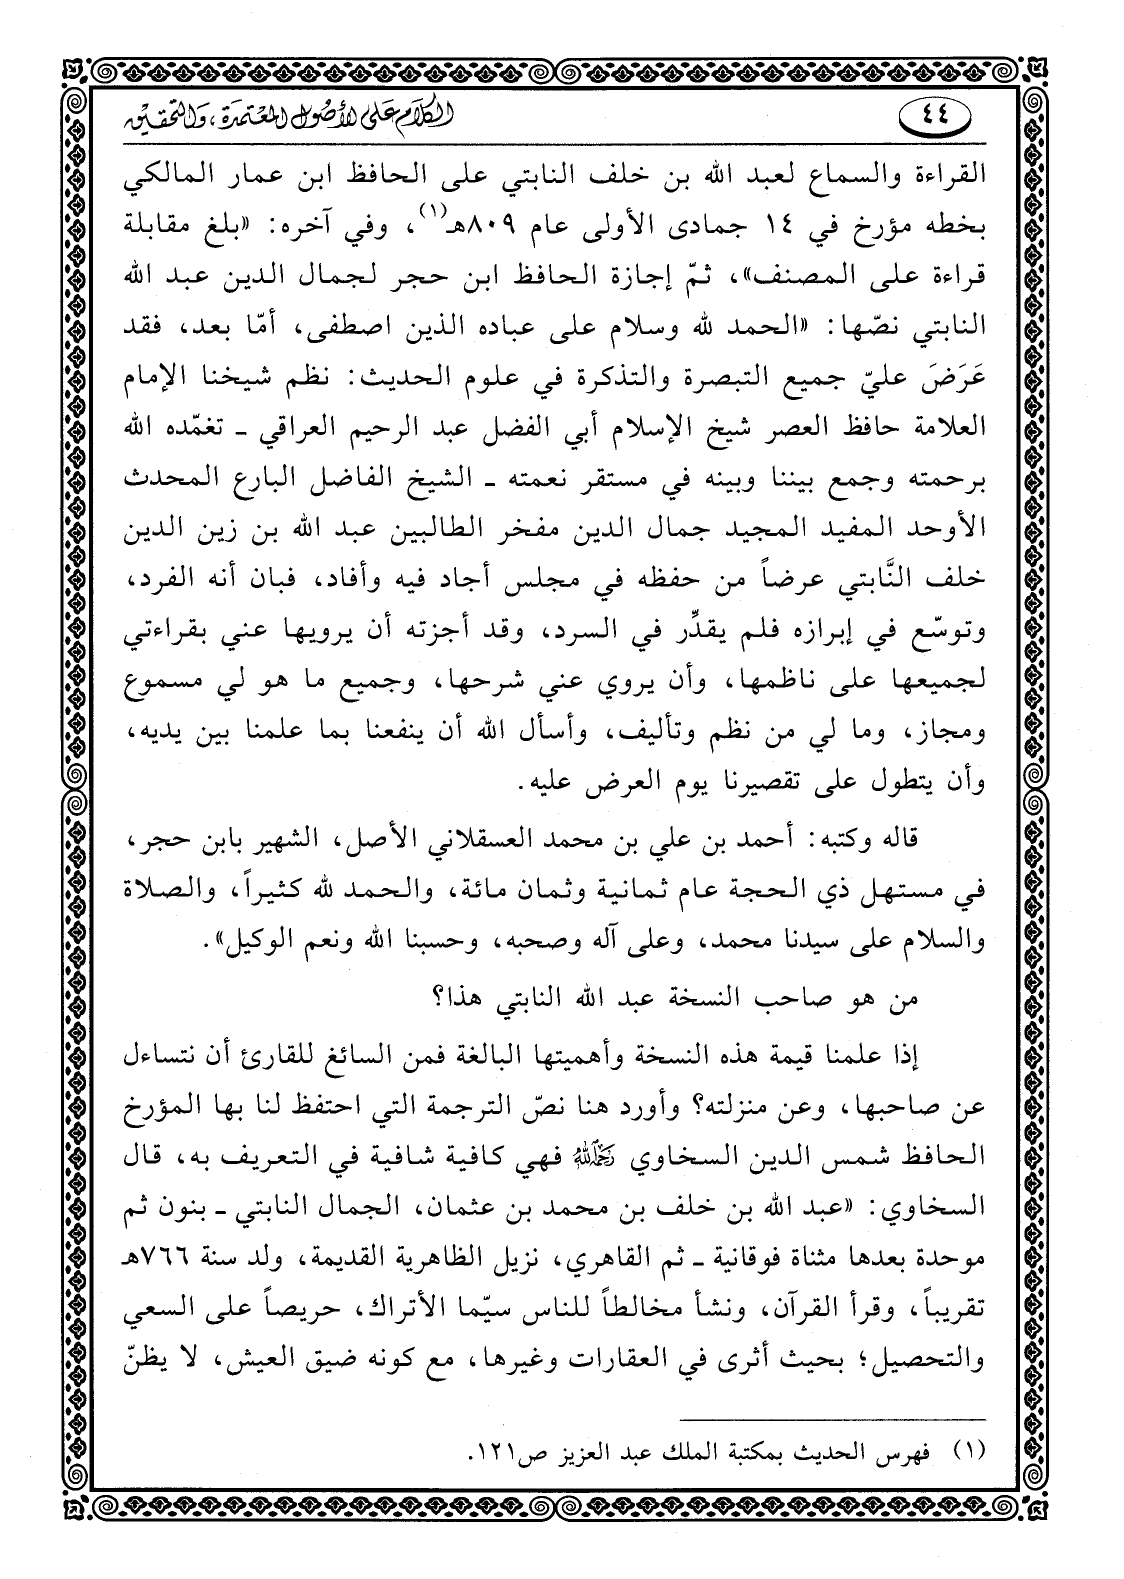 ٤٤
الكلام على الأصول المعتمدة، والتحقيق
القراءة والسماع لعبد الله بن خلف النابتي على الحافظ ابن عمار المالكي
بخطه مؤرخ في ١٤ جمادى الأولى عام ٨٠٩هـ(١)، وفي آخره: «بلغ مقابلة
قراءة على المصنف»، ثمّ إجازة الحافظ ابن حجر لجمال الدين عبد الله
النابتي نصّها: «الحمد لله وسلام على عباده الذين اصطفى، أمّا بعد، فقد
عَرَضَ عليّ جميع التبصرة والتذكرة في علوم الحديث: نظم شيخنا الإمام
العلامة حافظ العصر شيخ الإسلام أبي الفضل عبد الرحيم العراقي ـ تغمّده الله
برحمته وجمع بيننا وبينه في مستقر نعمته ـ الشيخ الفاضل البارع المحدث
الأوحد المفيد المجيد جمال الدين مفخر الطالبين عبد الله بن زين الدين
خلف النَّابتي عرضاً من حفظه في مجلس أجاد فيه وأفاد، فبان أنه الفرد،
وتوسّع في إبرازه فلم يقدِّر في السرد، وقد أجزته أن يرويها عني بقراءتي
لجميعها على ناظمها، وأن يروي عني شرحها، وجميع ما هو لي مسموع
ومجاز، وما لي من نظم وتأليف، وأسأل الله أن ينفعنا بما علمنا بين يديه،
وأن يتطول على تقصيرنا يوم العرض عليه.
قاله وكتبه: أحمد بن علي بن محمد العسقلاني الأصل، الشهير بابن حجر،
في مستهل ذي الحجة عام ثمانية وثمان مائة، والحمد لله كثيراً، والصلاة
والسلام على سيدنا محمد، وعلى آله وصحبه، وحسبنا الله ونعم الوكيل».
من هو صاحب النسخة عبد الله النابتي هذا؟
إذا علمنا قيمة هذه النسخة وأهميتها البالغة فمن السائغ للقارئ أن نتساءل
عن صاحبها، وعن منزلته؟ وأورد هنا نصّ الترجمة التي احتفظ لنا بها المؤرخ
الحافظ شمس الدين السخاوي رحمه الله فهي كافية شافية في التعريف به، قال
السخاوي: «عبد الله بن خلف بن محمد بن عثمان، الجمال النابتي ـ بنون ثم
موحدة بعدها مثناة فوقانية ـ ثم القاهري، نزيل الظاهرية القديمة، ولد سنة ٧٦٦هـ
تقريباً، وقرأ القرآن، ونشأ مخالطاً للناس سيّما الأتراك، حريصاً على السعي
والتحصيل؛ بحيث أثرى في العقارات وغيرها، مع كونه ضيق العيش، لا يظنّ
(١) فهرس الحديث بمكتبة الملك عبد العزيز ص١٢١.